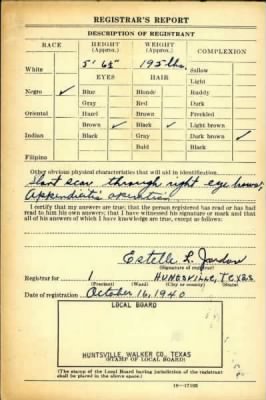 REGISTRAR'S REPORT
DESCRIPTION OF REGISTRANT
RACE HEIGHT (Approx.) WEIGHT (Approx.) COMPLEXION
5' 6½" 195 lbs.
White Sallow
EYES HAIR Light
Negro ✓ Blue Blonde Ruddy
Gray Red Dark
Oriental Hazel Brown Freckled
Brown ✓ Black ✓ Light brown
Indian Black Gray Dark brown ✓
Bald Black
Filipino
Other obvious physical characteristics that will aid in identification
scar through right eye brow,
Appendicitis operation
I certify that my answers are true; that the person registered has read or has had
read to him his own answers; that I have witnessed his signature or mark and that
all of his answers of which I have knowledge are true, except as follows:
Estelle L. Jordon
(Signature of registrar)
Registrar for 1 HUNTSVILLE, TEXAS
(Precinct) (Ward) (City or county) (State)
Date of registration October 16, 1940
LOCAL BOARD
HUNTSVILLE, WALKER CO., TEXAS
(STAMP OF LOCAL BOARD)
(The stamp of the Local Board having jurisdiction of the registrant
shall be placed in the above space.)